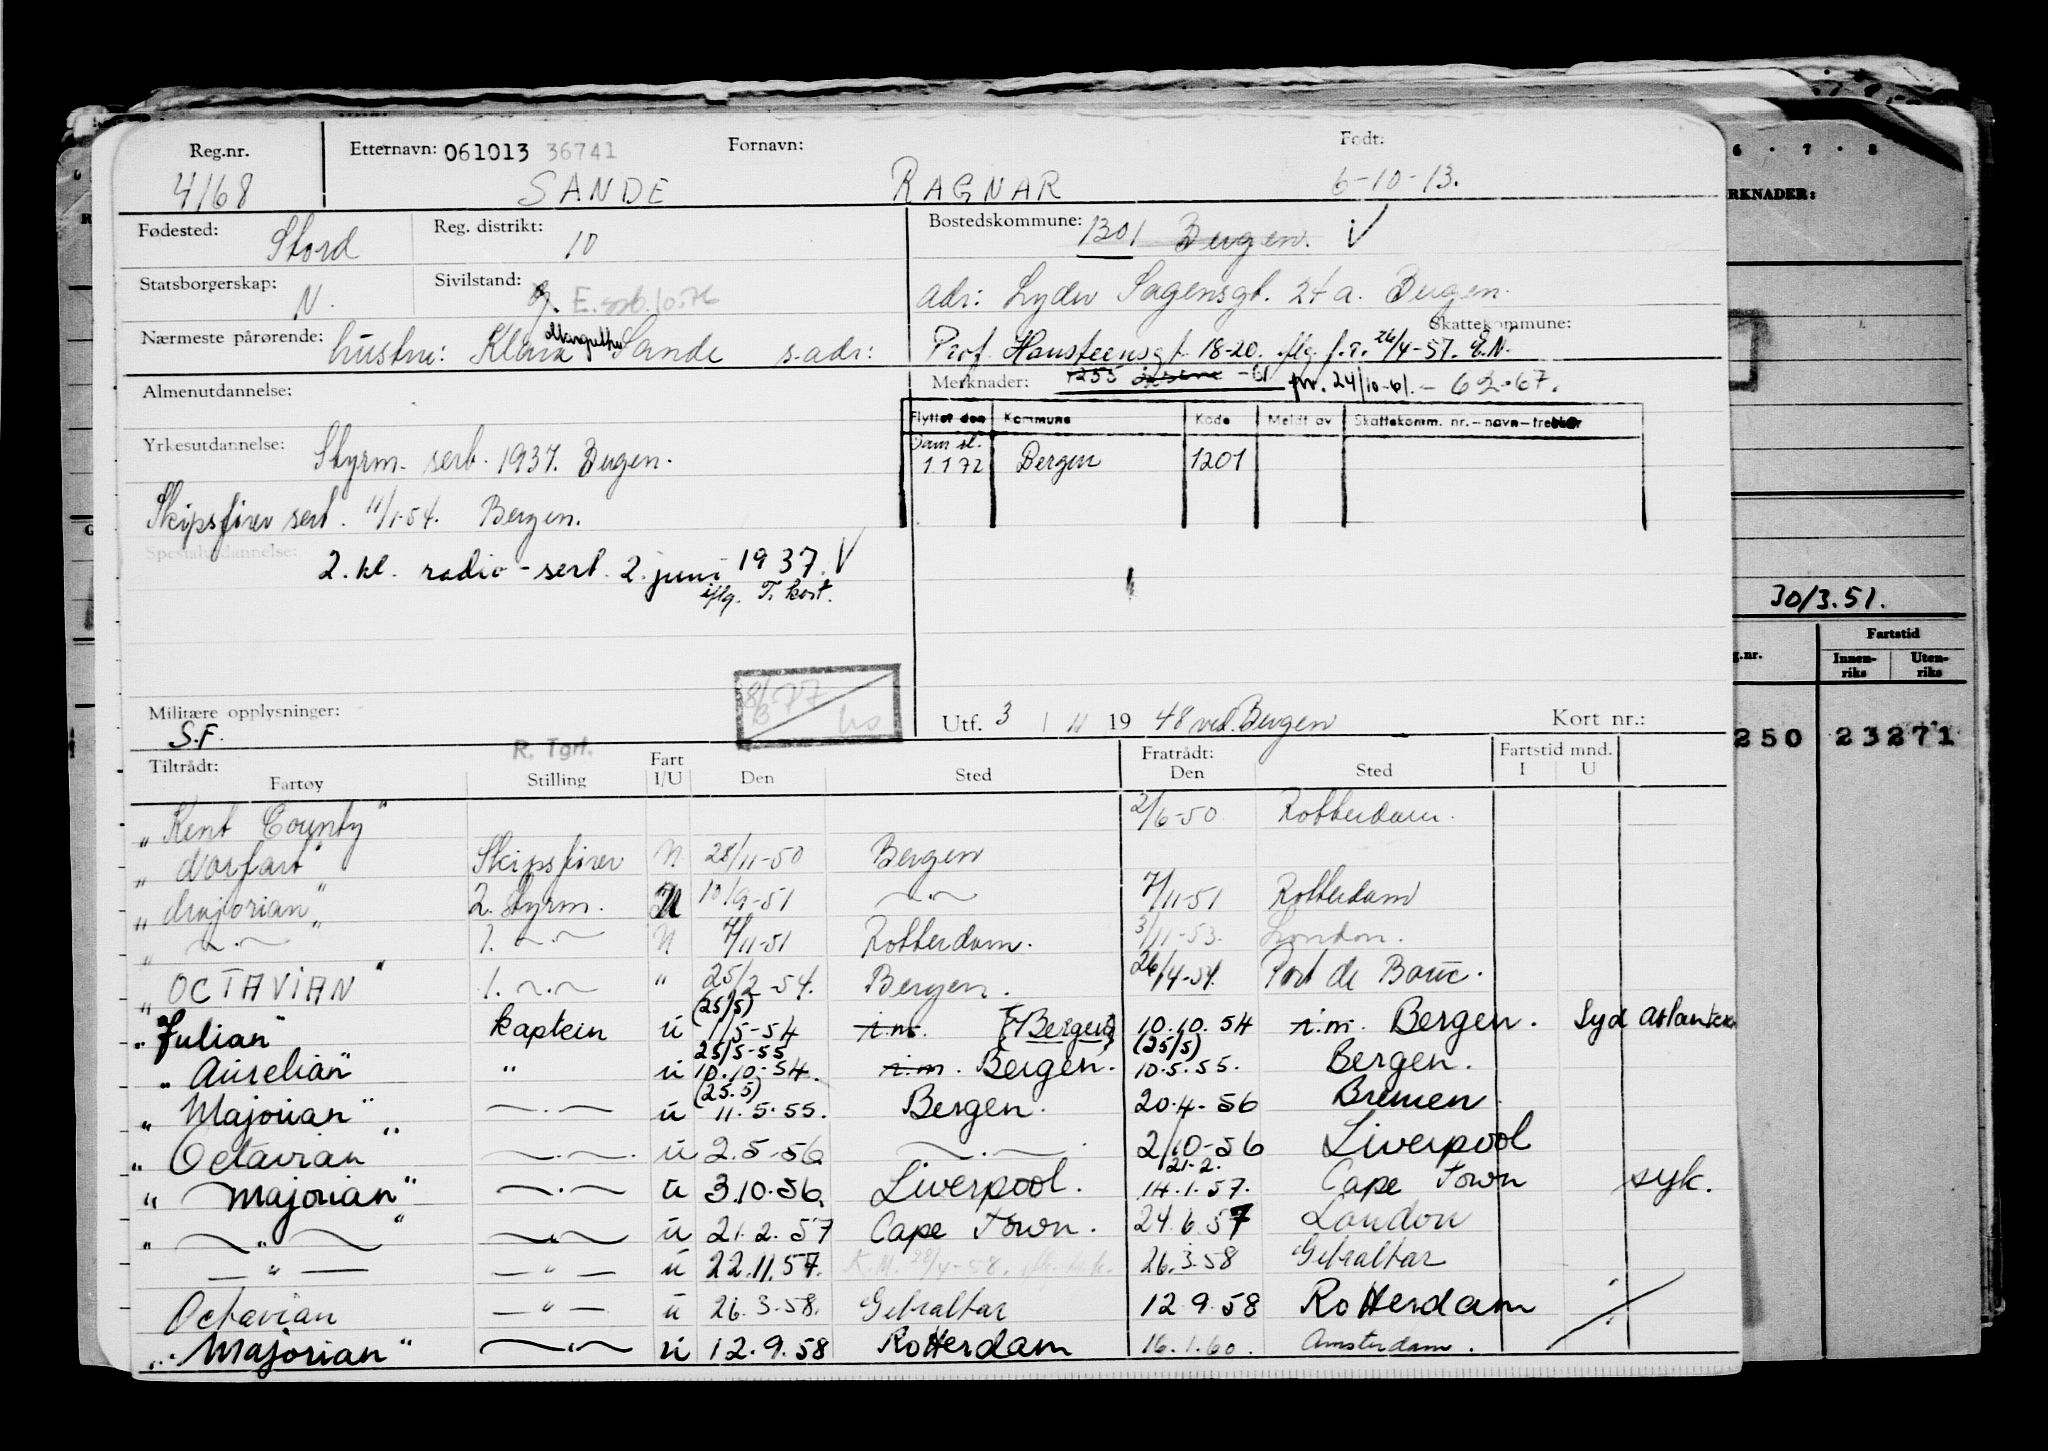 Reg.nr. Etternavn: 061013 36741 Fornavn: Født:
4168 SANDE RAGNAR 6-10-13.
Fødested: Stord Reg. distrikt: 10 Bostedskommune: 1301 Bergen. V
Statsborgerskap: N. Sivilstand: g. adr: Lyder Sagensgt. 24 a. Bergen.
Skattekommune:
Nærmeste pårørende: hustru: Klara Margrethe Sande s.adr: Prof. Hansteensgt. 18-20. iflg. f.r. 26/4-57. E.N.
Almenutdannelse: Merknader: 1255 -61 fnr. 24/10-61. - 6 2-67.
Flyttet den Kommune Kode Meldt av Skattekomm. nr.-navn-trekkår
Yrkesutdannelse: Styrm. serb. 1937. Bergen.
Sam sl. 1 1 72 Bergen 1201
Skipsfører sert. 11/1-54. Bergen.
Spesialutdannelse: 2. kl. radio-sert. 2. juni 1937. V
iflg. T. kort.
Militære opplysninger: S.F.
Utf. 3 / 11 19 48 ved Bergen Kort nr.:
R. Tgrf.
Tiltrådt: Fartøy Stilling Fart I/U Den Sted Fratrådt: Den Sted Fartstid mnd. I U
"Kent County" 2/6-50 Rotterdam.
"Norfart" Skipsfører U 28/11-50 Bergen
"Majorian" 2. styrm. U 10/9-51 ~.~ 7/11-51 Rotterdam
" ~.~ " 1. ~.~ U 7/11-51 Rotterdam. 3/11-53. London.
"OCTAVIAN" 1. ~.~ " 25/2-54. Bergen. 26/4-54. Port de Bouc.
(25/5)
"Julian" kaptein u 1/5-54 i.m. (Bergen) 10.10.54 i.m. Bergen. Syd Atlanteren
25/5-55 (25/5)
"Aurelian" " u 10.10.54. i.m. Bergen. 10.5.55. Bergen.
(25.5)
"Majorian" ~.~ u 11.5.55. Bergen. 20.4-56 Bremen.
"Octavian" ~.~ u 2.5.56 ~.~ 2/10-56 Liverpool
21.2.
"Majorian" ~.~ u 3.10.56. Liverpool. 14.1.57. Cape Town syk.
" ~"~ " ~"~ u 21.2.57 Cape Town. 24.6.57 London
—"— —"— u 22.11.57. K.M. 28/4-58. 26.3.58 Gibraltar
Octavian —"— u 26.3.58. Gibraltar 12.9.58 Rotterdam
"Majorian" ~.~ u 12.9.58 Rotterdam 16.1.60. Amsterdam.
6 · 7 · 8
RKNADER:
30/3.51.
g.nr. Fartstid
Innen-riks Uten-riks
250 23271